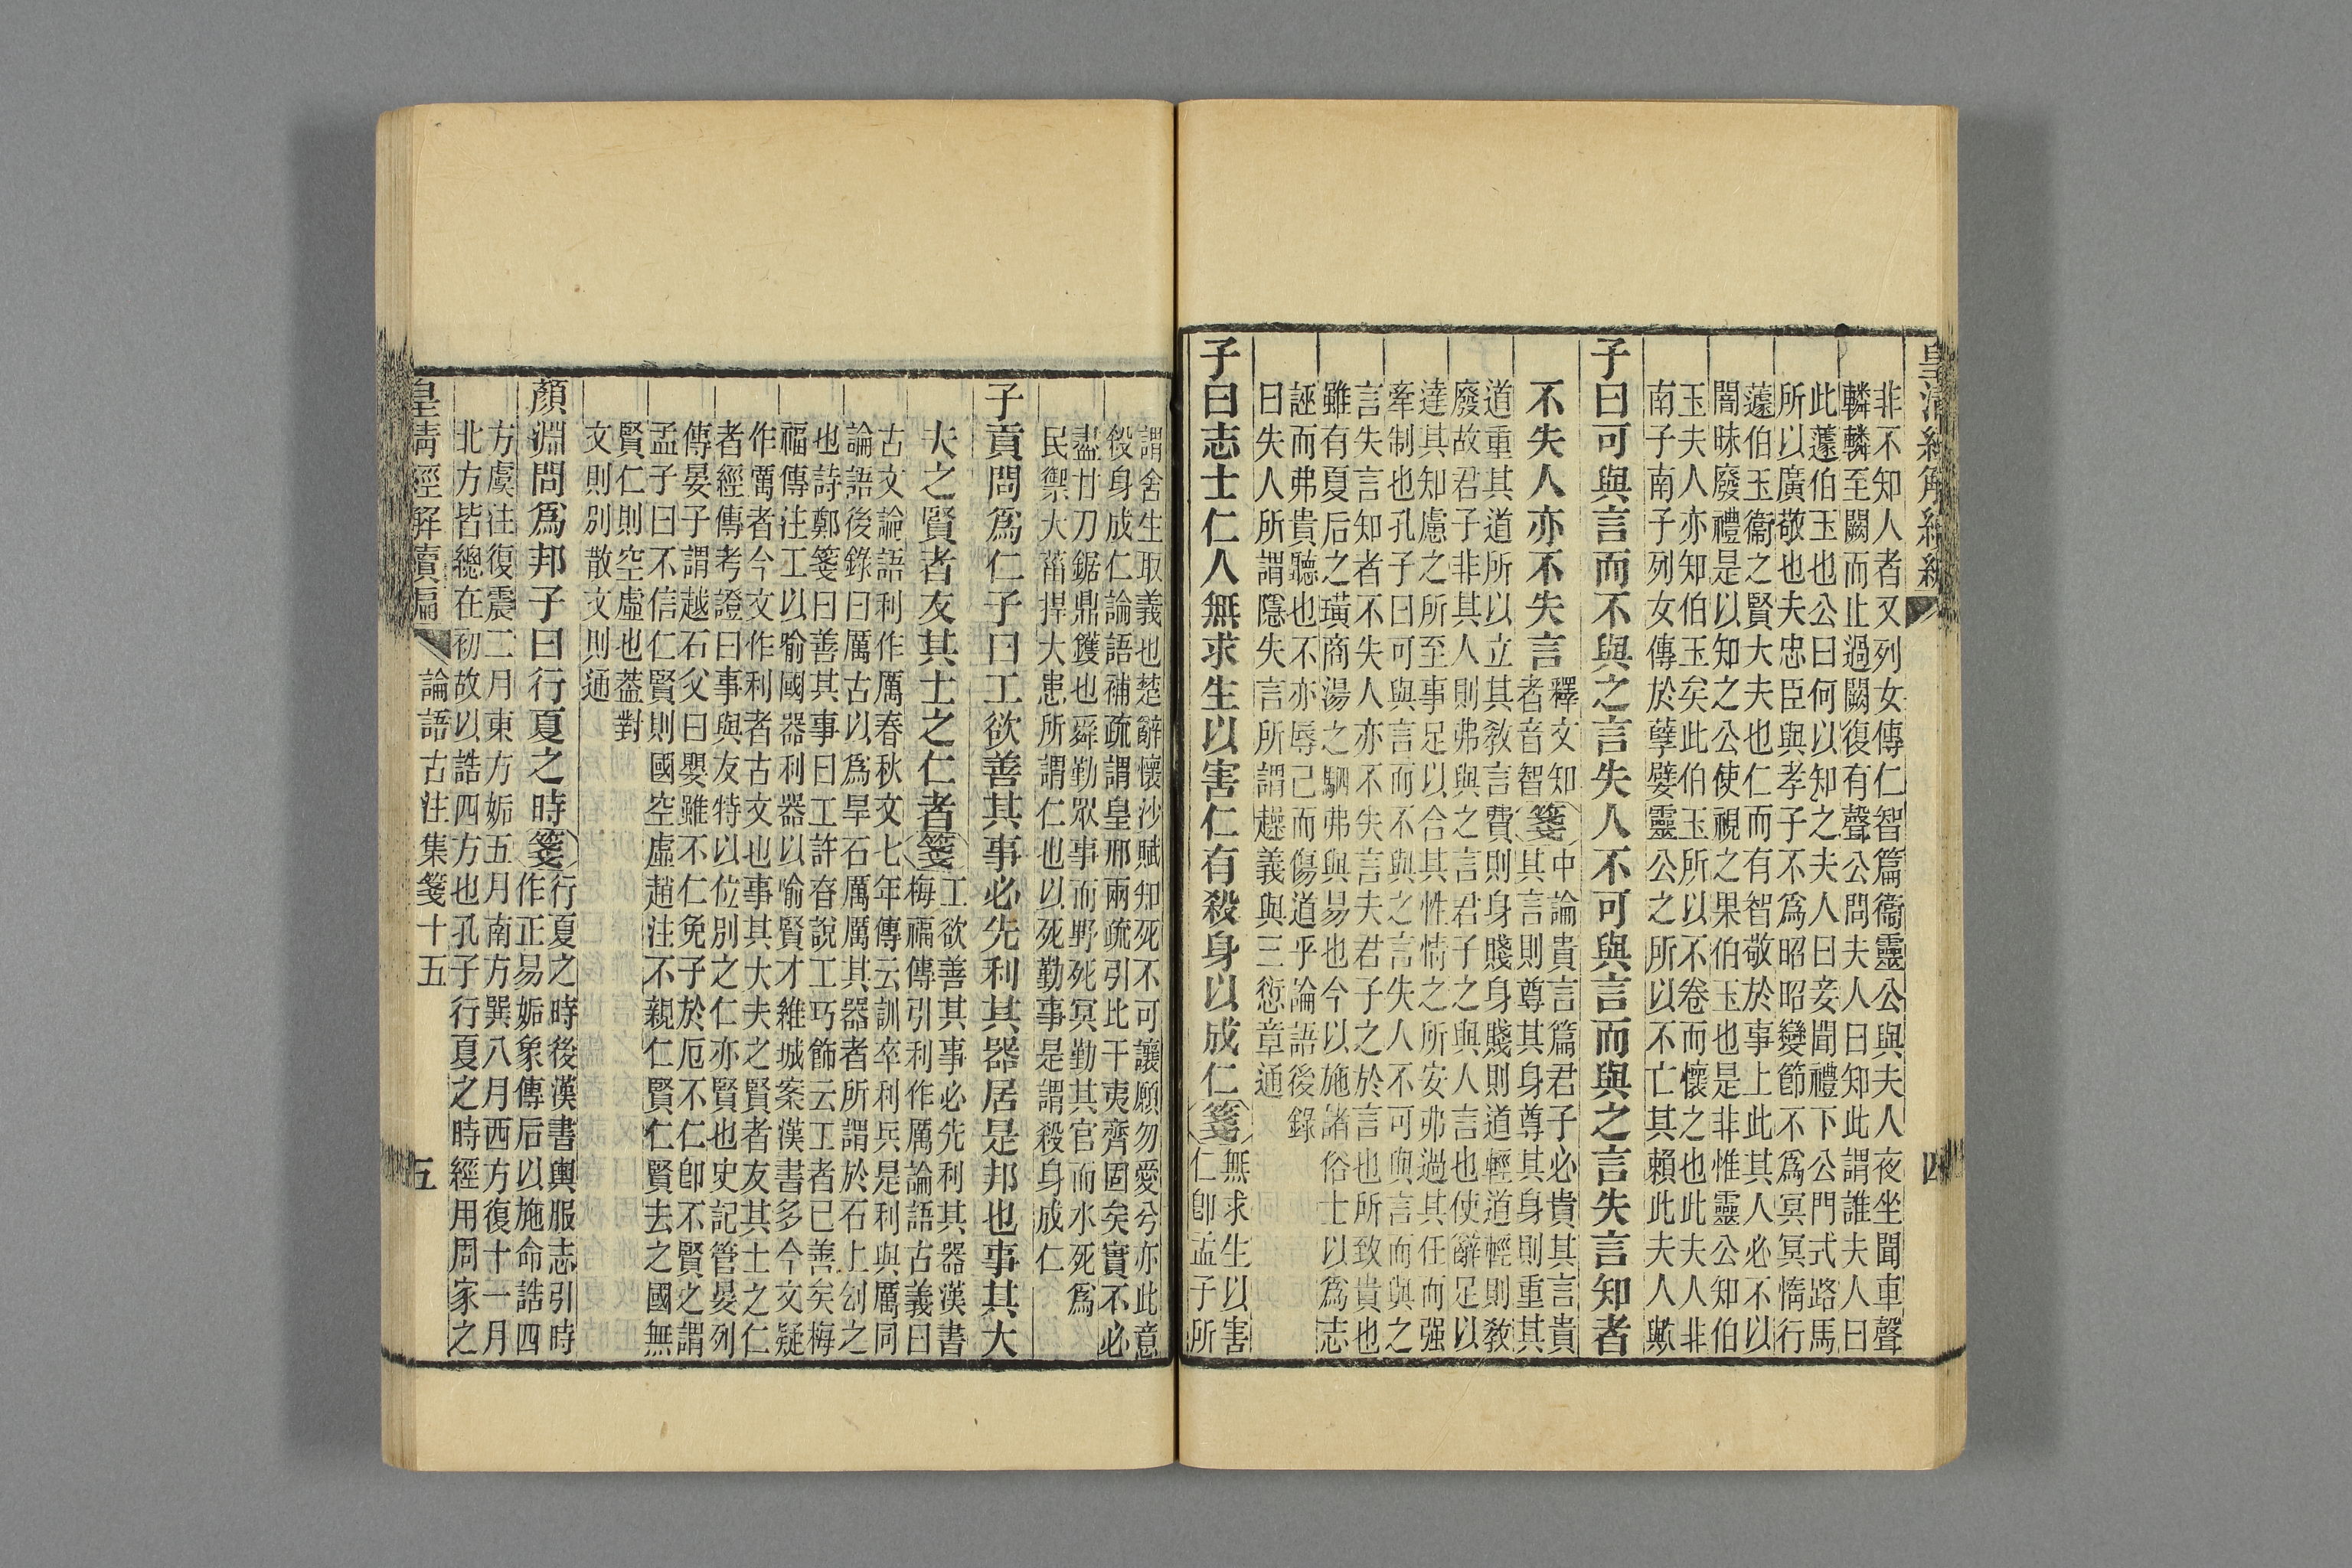 皇清經解續編
四
非不知人者又列女傳仁智篇衞靈公與夫人夜坐聞車聲
轔轔至闕而止過闕復有聲公問夫人曰知此謂誰夫人曰
此蘧伯玉也公曰何以知之夫人曰妾聞禮下公門式路馬
所以廣敬也夫忠臣與孝子不爲昭昭變節不爲冥冥惰行
蘧伯玉衞之賢大夫也仁而有智敬於事上此其人必不以
闇昧廢禮是以知之公使視之果伯玉也是非惟靈公知伯
玉夫人亦知伯玉矣此伯玉所以不卷而懷之也此夫人非
南子南子列女傳於孽嬖靈公之所以不亡其賴此夫人歟
子曰可與言而不與之言失人不可與言而與之言失言知者
不失人亦不失言釋文知者音智箋中論貴言篇君子必貴其言貴其言則尊其身尊其身則重其
道重其道所以立其敎言費則身賤身賤則道輕道輕則敎
廢故君子非其人則弗與之言君子之與人言也使辭足以
達其知慮之所至事足以合其性情之所安弗過其任而强
牽制也孔子曰可與言而不與之言失人不可與言而與之
言失言知者不失人亦不失言夫君子之於言也所致貴也
雖有夏后之璜商湯之駟弗與易也今以施諸俗士以爲志
誣而弗貴聽也不亦辱己而傷道乎論語後錄
曰失人所謂隱失言所謂趮義與三愆章通
子曰志士仁人無求生以害仁有殺身以成仁箋無求生以害仁卽孟子所
謂舍生取義也楚辭懷沙賦知死不可讓願勿愛兮亦此意
殺身成仁論語補疏謂皇邢兩疏引比干夷齊固矣實不必
盡甘刀鋸鼎鑊也舜勤眾事而野死冥勤其官而水死爲
民禦大菑捍大患所謂仁也以死勤事是謂殺身成仁
子貢問爲仁子曰工欲善其事必先利其器居是邦也事其大
夫之賢者友其士之仁者箋工欲善其事必先利其器漢書梅福傳引利作厲論語古義曰
古文論語利作厲春秋文七年傳云訓卒利兵是利與厲同
論語後錄曰厲古以爲旱石厲厲其器者所謂於石上刉之
也詩鄭箋曰善其事曰工許眘說工巧飾云工者已善矣梅
福傳注工以喻國器利器以喻賢才維城案漢書多今文疑
作厲者今文作利者古文也事其大夫之賢者友其士之仁
者經傳考證曰事與友特以位別之仁亦賢也史記管晏列
傳晏子謂越石父曰嬰雖不仁免子於厄不仁卽不賢之謂
孟子曰不信仁賢則國空虛趙注不親仁賢仁賢去之國無
賢仁則空虛也葢對
文則別散文則通
顏淵問爲邦子曰行夏之時箋行夏之時後漢書輿服志引時作正易姤象傳后以施命誥四
方虞注復震二月東方姤五月南方巽八月西方復十一月
北方皆總在初故以誥四方也孔子行夏之時經用周家之
皇清經解續編
論語古注集箋十五
五